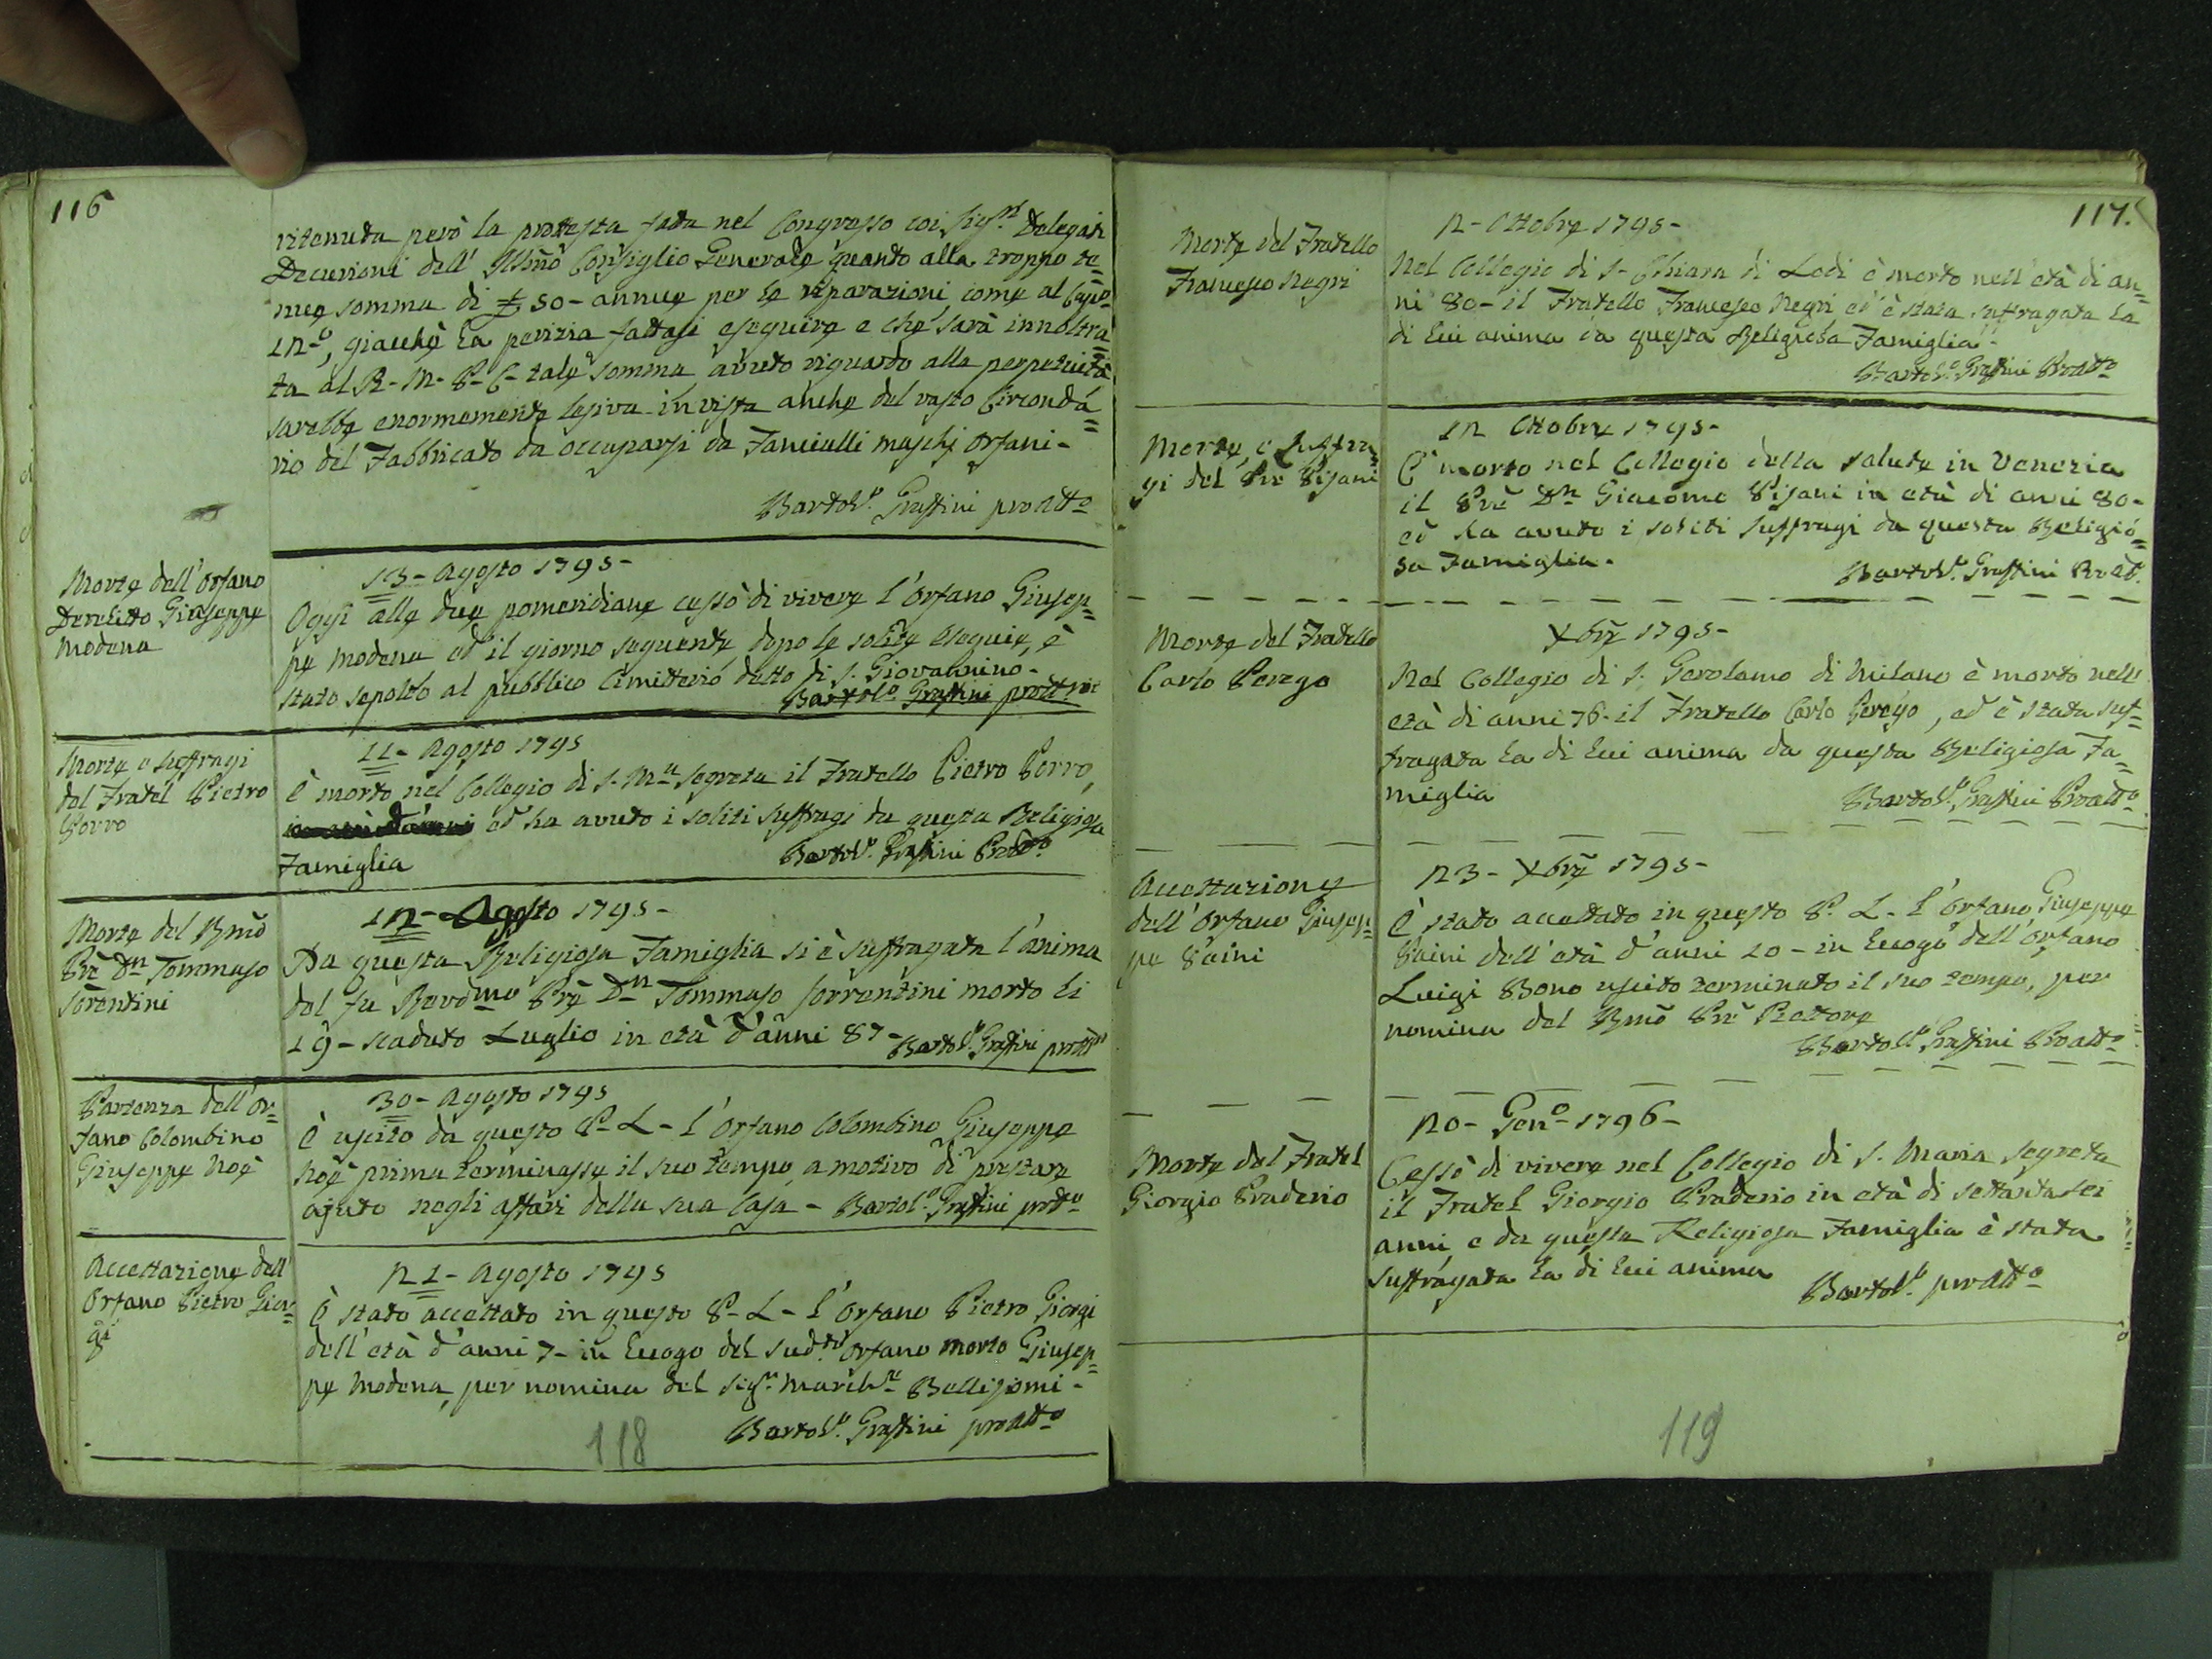 116
ritenuta però la protesta fatta nel Congresso coi Sig.ri Delegati
Decurioni dell' Illmo Consiglio Generale quanto alla troppo te=
nue somma di £ 50 - annue per le riparazioni come al Capo
12-o, giacchè la perizia fattasi eseguire e che sarà innoltra=
ta al R- M- P- C- tale somma avuto riguardo alla perpetuità
sarebbe enormemente lesiva in vista anche del vasto Circondá=
rio del Fabbricato da occuparsi da Fanciulli maschj Orfani -
Bartol.o Graffini proAtt.o
Morte dell' Orfano
Derelitto Giuseppe
Modena
13 - Agosto 1795 -
Oggi alle due pomeridiane cessò di vivere l' Orfano Giusep=
pe Modena ed il giorno seguente, dopo le solite esequie, è
stato sepolto al pubblico Cimitterio detto di S. Giovannino -
Bartol.o Graffini proAtt.o
Morte e suffragi
del Fratel Pietro
Porro
11 - Agosto 1795
È morto nel Collegio di S. M.a Segreta il Fratello Pietro Porro,
ed ha avuto i soliti suffragi da questa Religiosa
Famiglia
Bartol.o Graffini ProAtt.o
Morte del Rmo
Prẽ Dn Tommaso
Sorentini
12 - Agosto 1795 -
Da questa Religiosa Famiglia si è suffragata l' anima
del fu Revdmo Prẽ Dn Tommaso Sorrentini morto li
19 - scaduto Luglio in età d' anni 87 - Bartol.o Graffini proAtt.o
Partenza dell' Or=
fano Colombino
Giuseppe Noè
30 - Agosto 1795
È uscito da questo P- L- l' Orfano Colombino Giuseppe
Noè prima terminasse il suo tempo, a motivo di prestare
ajuto negli affari della sua Casa - Bartol.o Graffini proAtt.o
Accettazione dell'
Orfano Pietro Gior=
gi
21 - Agosto 1795
È stato accettato in questo P- L- l' Orfano Pietro Giorgi
dell' età d' anni 7 - in luogo del sudd.to Orfano morto Giusep=
pe Modena, per nomina del Sig.r March.e Bellisomi -
Bartol.o Graffini proAtt.o
118
117.
Morte del Fratello
Francesco Negri
2 - Ottobre 1795 -
Nel Collegio di S- Chiara di Lodi è morto nell' età di an=
ni 80 - il Fratello Francesco Negri ed è stata suffragata la
di lui anima da questa Religiosa Famiglia -
Bartol.o Graffini ProAtt.o
Morte, e Suffra=
gi del Prẽ Pisani
12 Ottobre 1795 -
È morto nel Collegio della Salute in Venezia
il Prẽ Dn Giacomo Pisani in età di anni 80 -
ed ha avuto i soliti suffragi da questa Religio=
sa Famiglia.
Bartol.o Graffini ProAtt.
Morte del Fratello
Carlo Perego
Xbrẽ 1795 -
Nel Collegio di S. Gerolamo di Milano è morto nell'
età di anni 76 - il Fratello Carlo Perego, ed è stata suf=
fragata la di lui anima da questa Religiosa Fa=
miglia
Bartol.o Graffini ProAtt.o
Accettazione
dell' Orfano Giusep=
pe Paini
23 - Xbrẽ 1795 -
È stato accettato in questo P- L- l' Orfano Giuseppe
Paini dell' età d' anni 10 - in luogo dell' Orfano
Luigi Bono uscito terminato il suo tempo, per
nomina del Rmo Prẽ Rettore
Bartol.o Graffini ProAtt.o
Morte del Fratel
Giorgio Praderio
20 - Gen.o 1796 -
Cessò di vivere nel Collegio di S. Maria Segreta
il Fratel Giorgio Praderio in età di settantasei
anni e da questa Religiosa Famiglia è stata
suffragata la di lui anima
Bartol.o proAtt.o
119